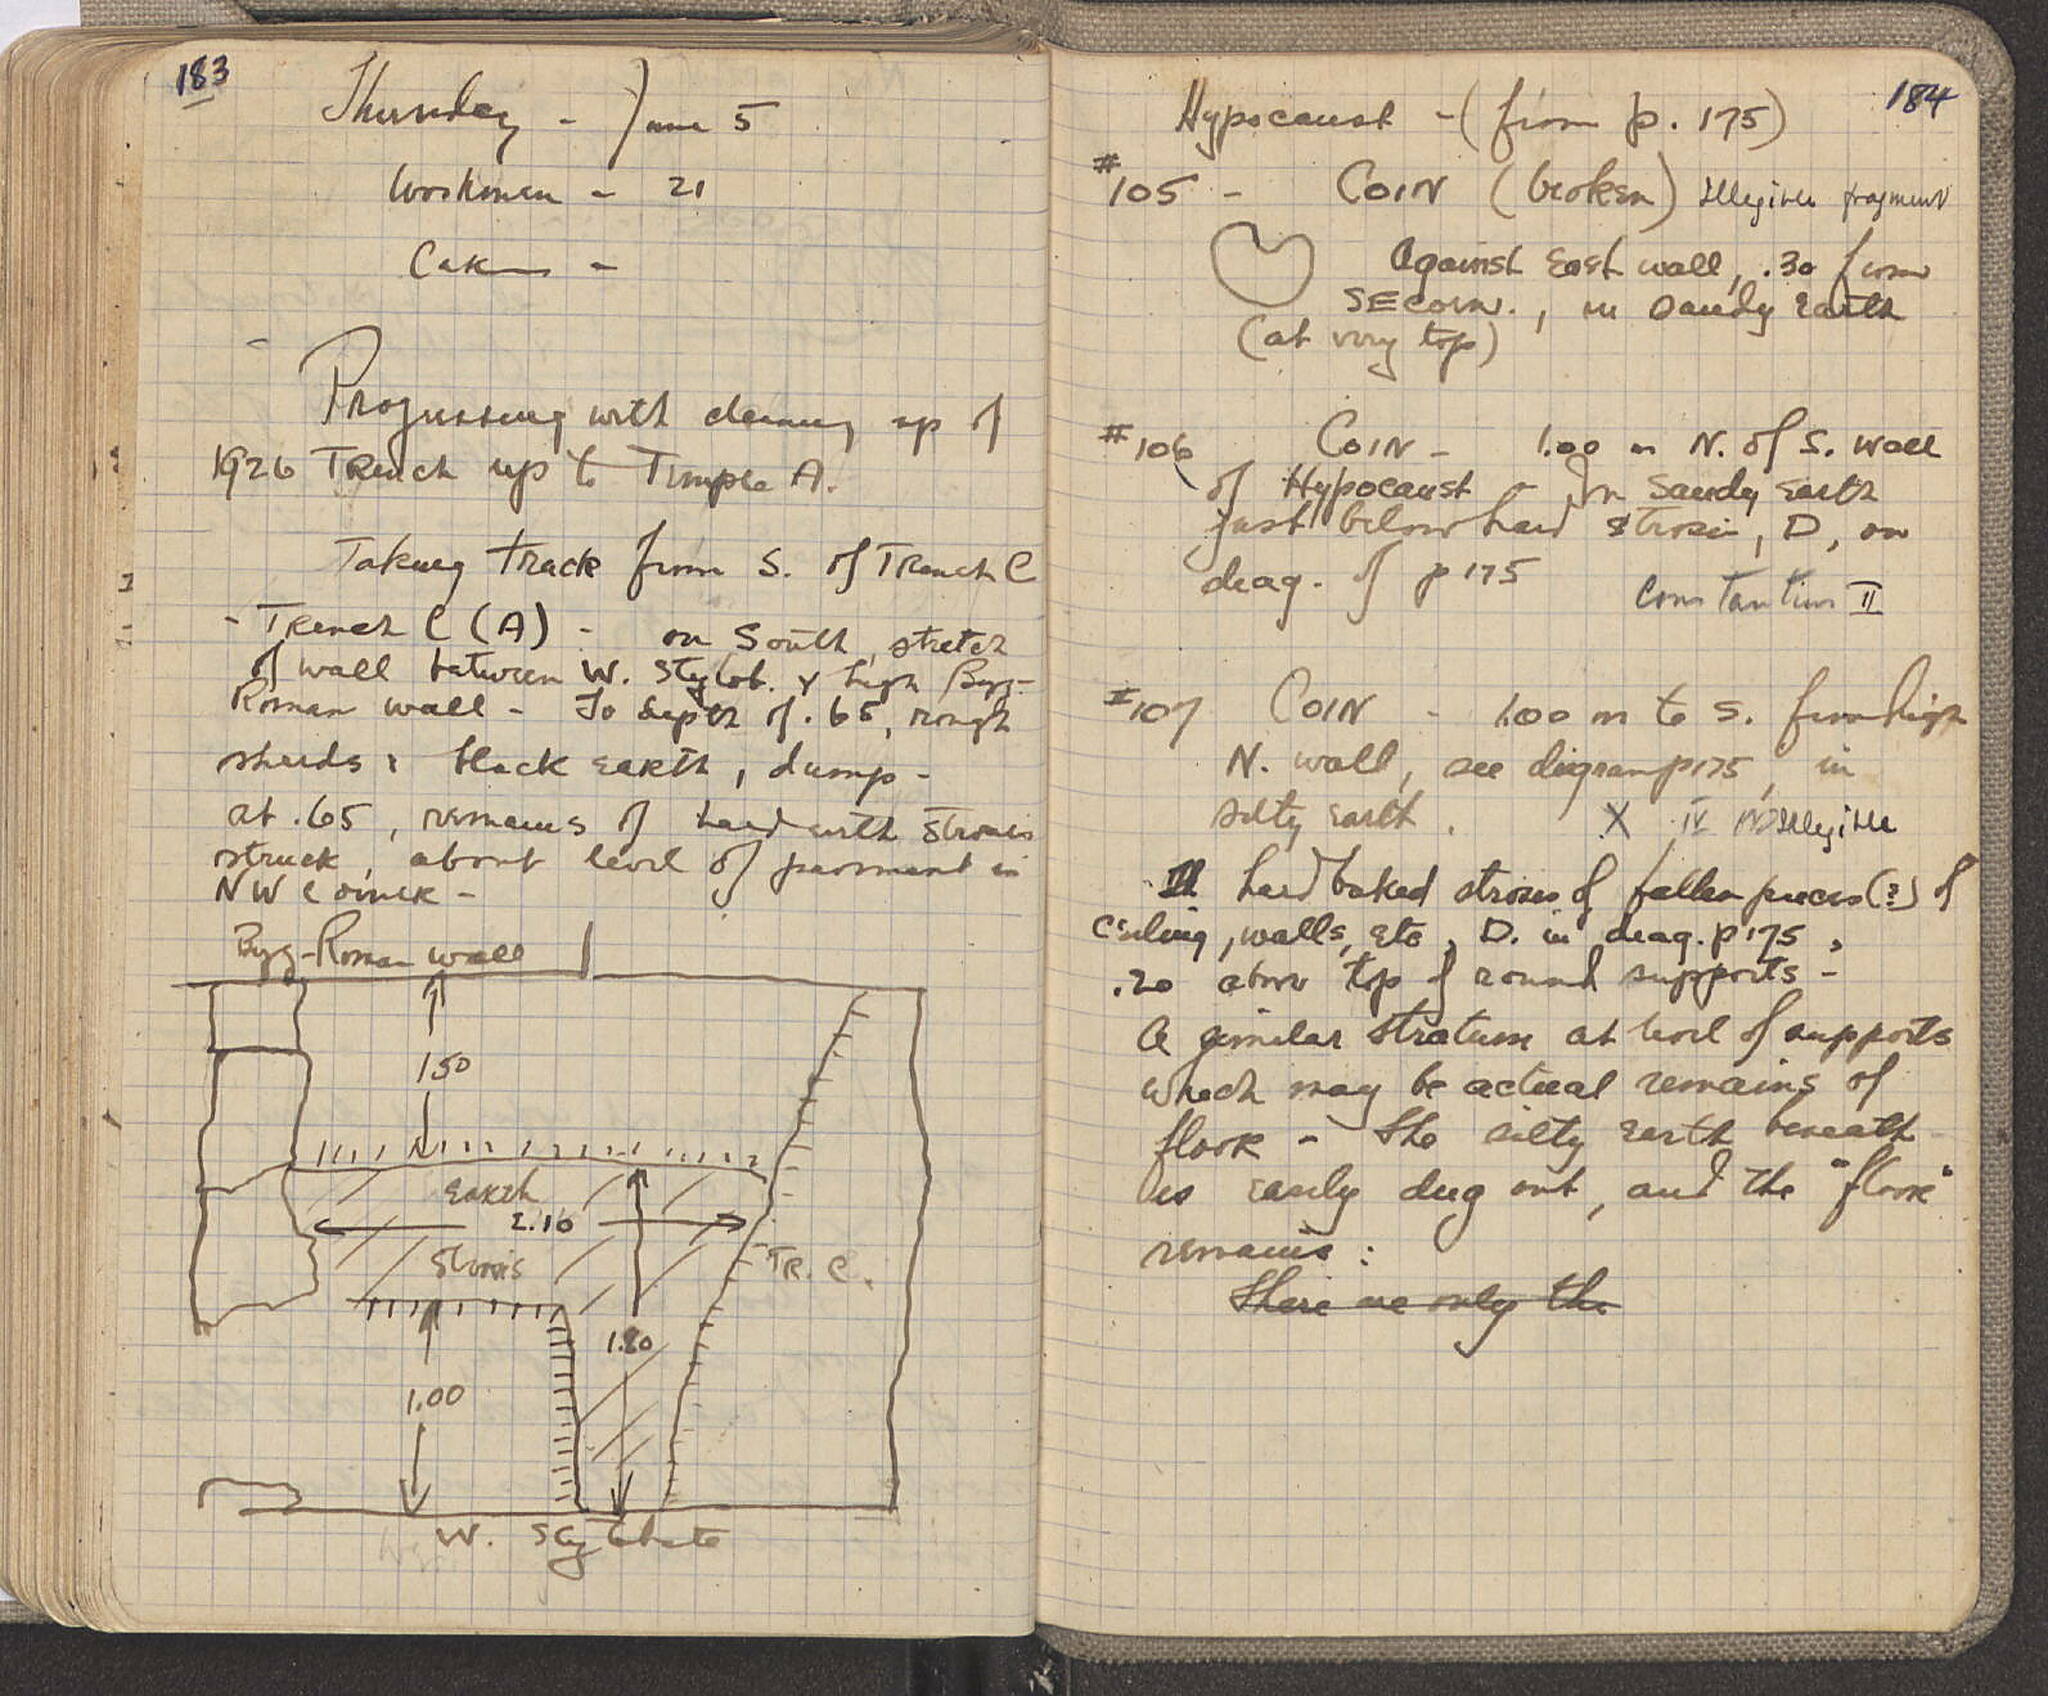 183
Thursday - June 5
Workmen - 21
Cakes -
- Progressing with cleaning up of
1926 Trench up to Temple A.
Taking track from S. of Trench C
- Trench C (A) - on South, stretch
of wall between W. Stylob. & high Byz-
Roman wall - To depth of .65, rough
sherds, black earth, dump -
at .65, remains of hard earth stroses
struck, about level of pavement in
NW corner -
Byz-Roman wall
1.50
Earth
2.10
Stroses
TR. C.
1.80
1.00
W. Stylobate
184
Hypocaust - (from p. 175)
#105 - COIN (broken) Illegible fragment
Against East wall, .30 from
SE corn., in sandy earth
(at very top)
#106 COIN - 1.00 m N. of S. wall
of Hypocaust - In sandy earth
just below hard strosis, D, on
diag. of p 175
Constantius II
#107 COIN - 1.00 m to S. from high
N. wall, see digram p 175, in
silty earth. X IV Illegible
II hard baked stroses of fallen pieces (?) of
ceiling, walls, etc, D. in diag. p 175,
.20 above top of round supports -
A similar stratum at level of supports
which may be actual remains of
floor - The silty earth beneath
is easily dug out, and the "floor"
remains:
There are only the